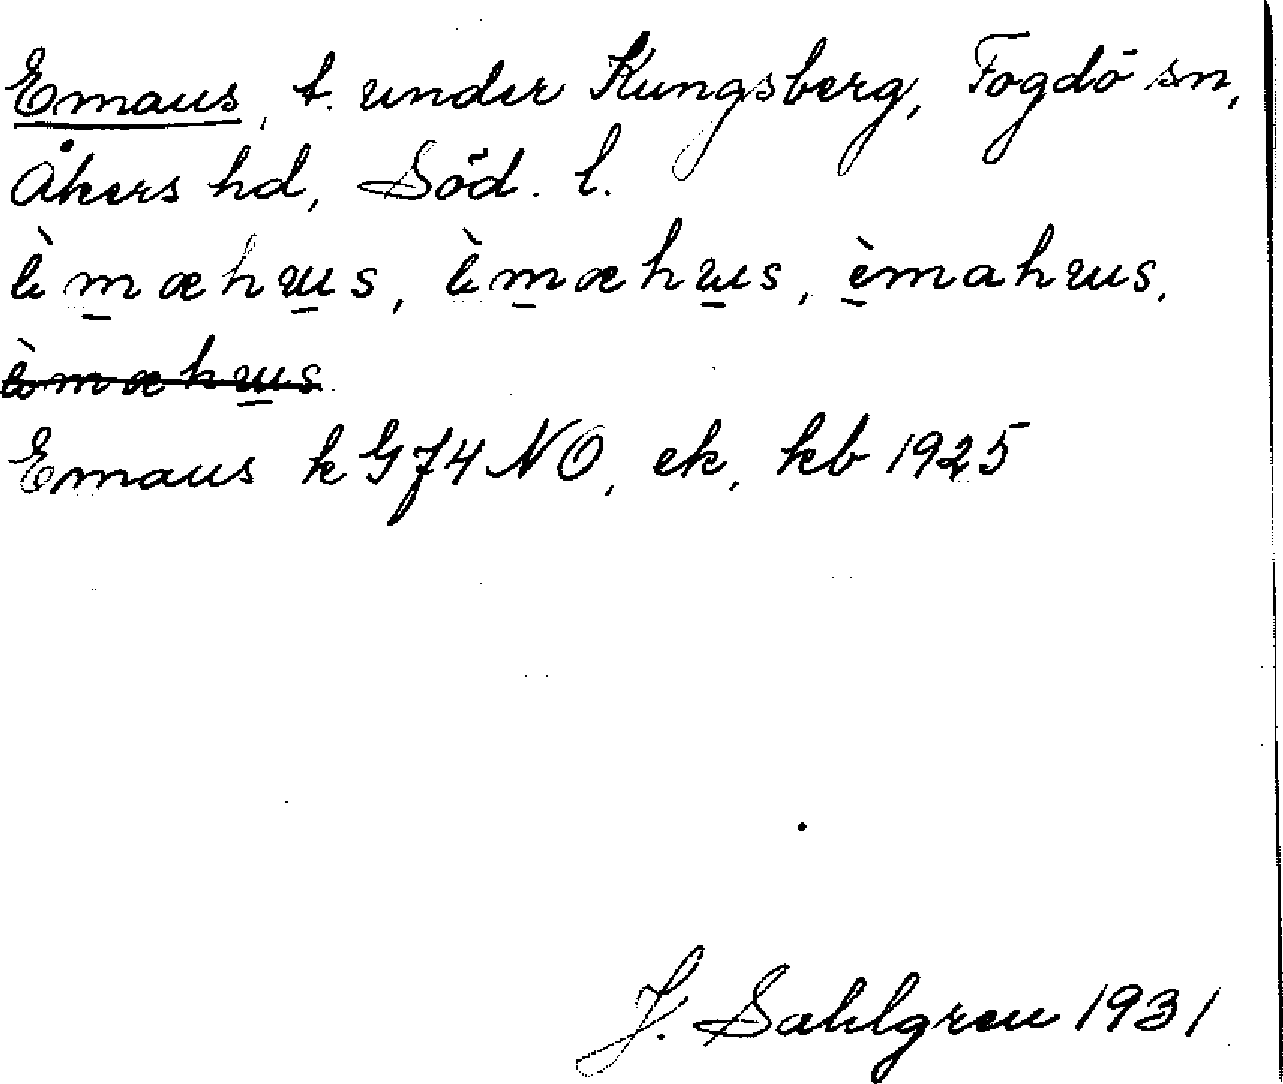 Emaus, t. under Kungsberg, Fogdö sn,
Åkers hd, Söd. l.
èmæhɯs, èmæhɯs, èmahɯs,
èmæhɯs.
Emaus k G74 NO, ek, kb 1925
J. Sahlgren 1931